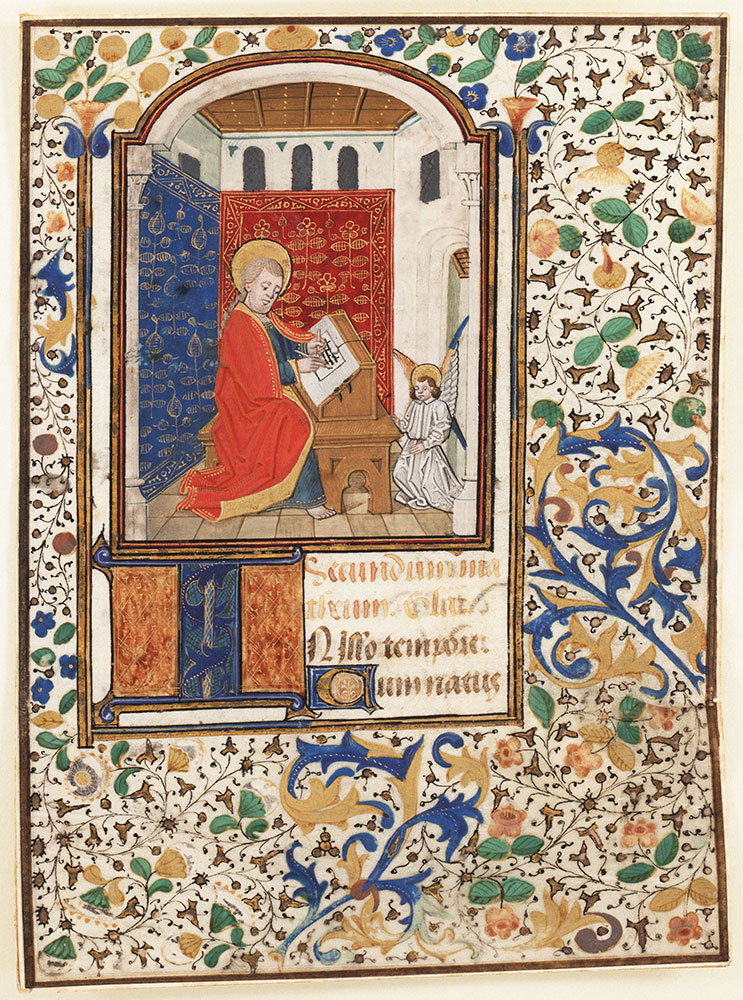 Secundum ma
theum. Glor
IN illo tempore
Cum natus